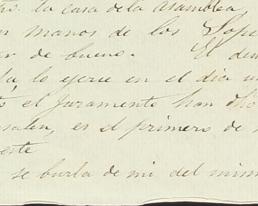 la casa de la asamblea,
manos de los
de bueno. El
lo ejerce en el dia
el juramento han
es el primero de
este
se burla de mi del mism